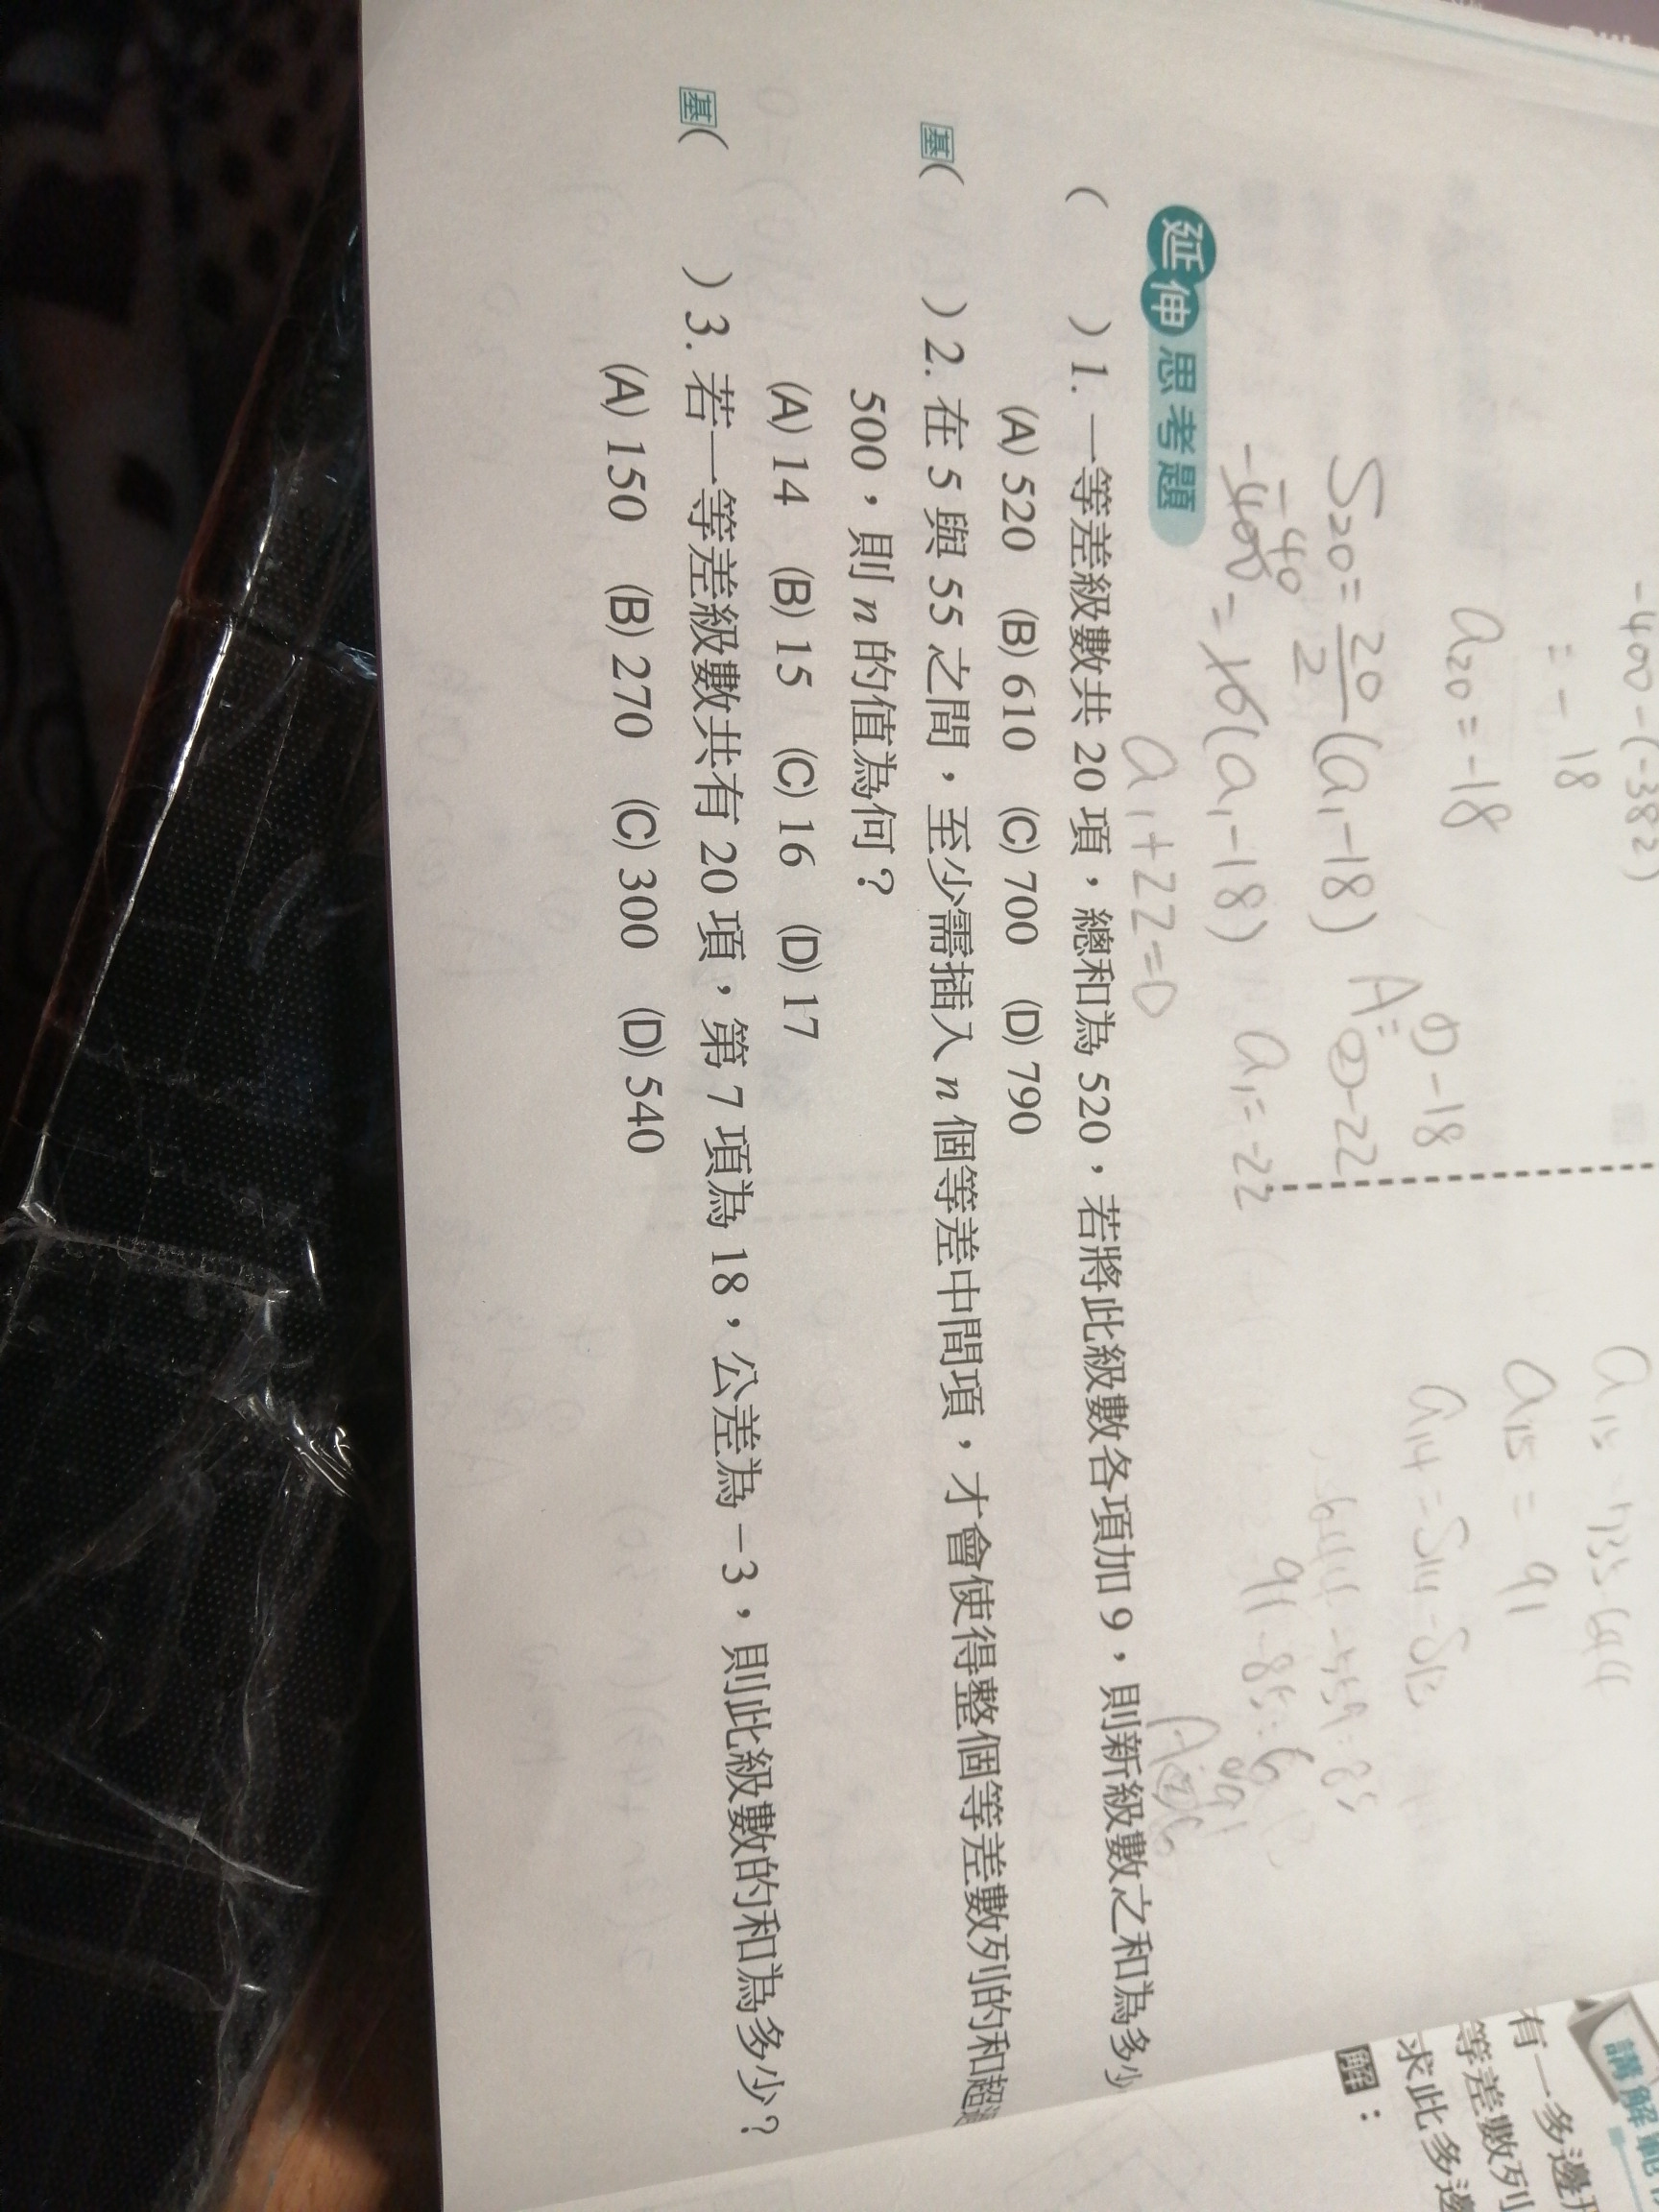 -400-(-382)
= -18
a20 = -18
S20 = 20/2 (a1-18)
-40
-400 = 10(a1-18)
a1+22=0
a1=-22
A: ① -18
② -22
a15 = 735-644
a15 = 91
a14 = S14-S13
644-559=85
91-85=6
延伸思考題
( ) 1. 一等差級數共 20 項，總和為 520，若將此級數各項加 9，則新級數之和為多少
(A) 520 (B) 610 (C) 700 (D) 790
基( ) 2. 在 5 與 55 之間，至少需插入 n 個等差中間項，才會使得整個等差數列的和超過
500，則 n 的值為何？
(A) 14 (B) 15 (C) 16 (D) 17
基( ) 3. 若一等差級數共有 20 項，第 7 項為 18，公差為 -3，則此級數的和為多少？
(A) 150 (B) 270 (C) 300 (D) 540
講解範
有一多邊形
等差數列
求此多邊
解：